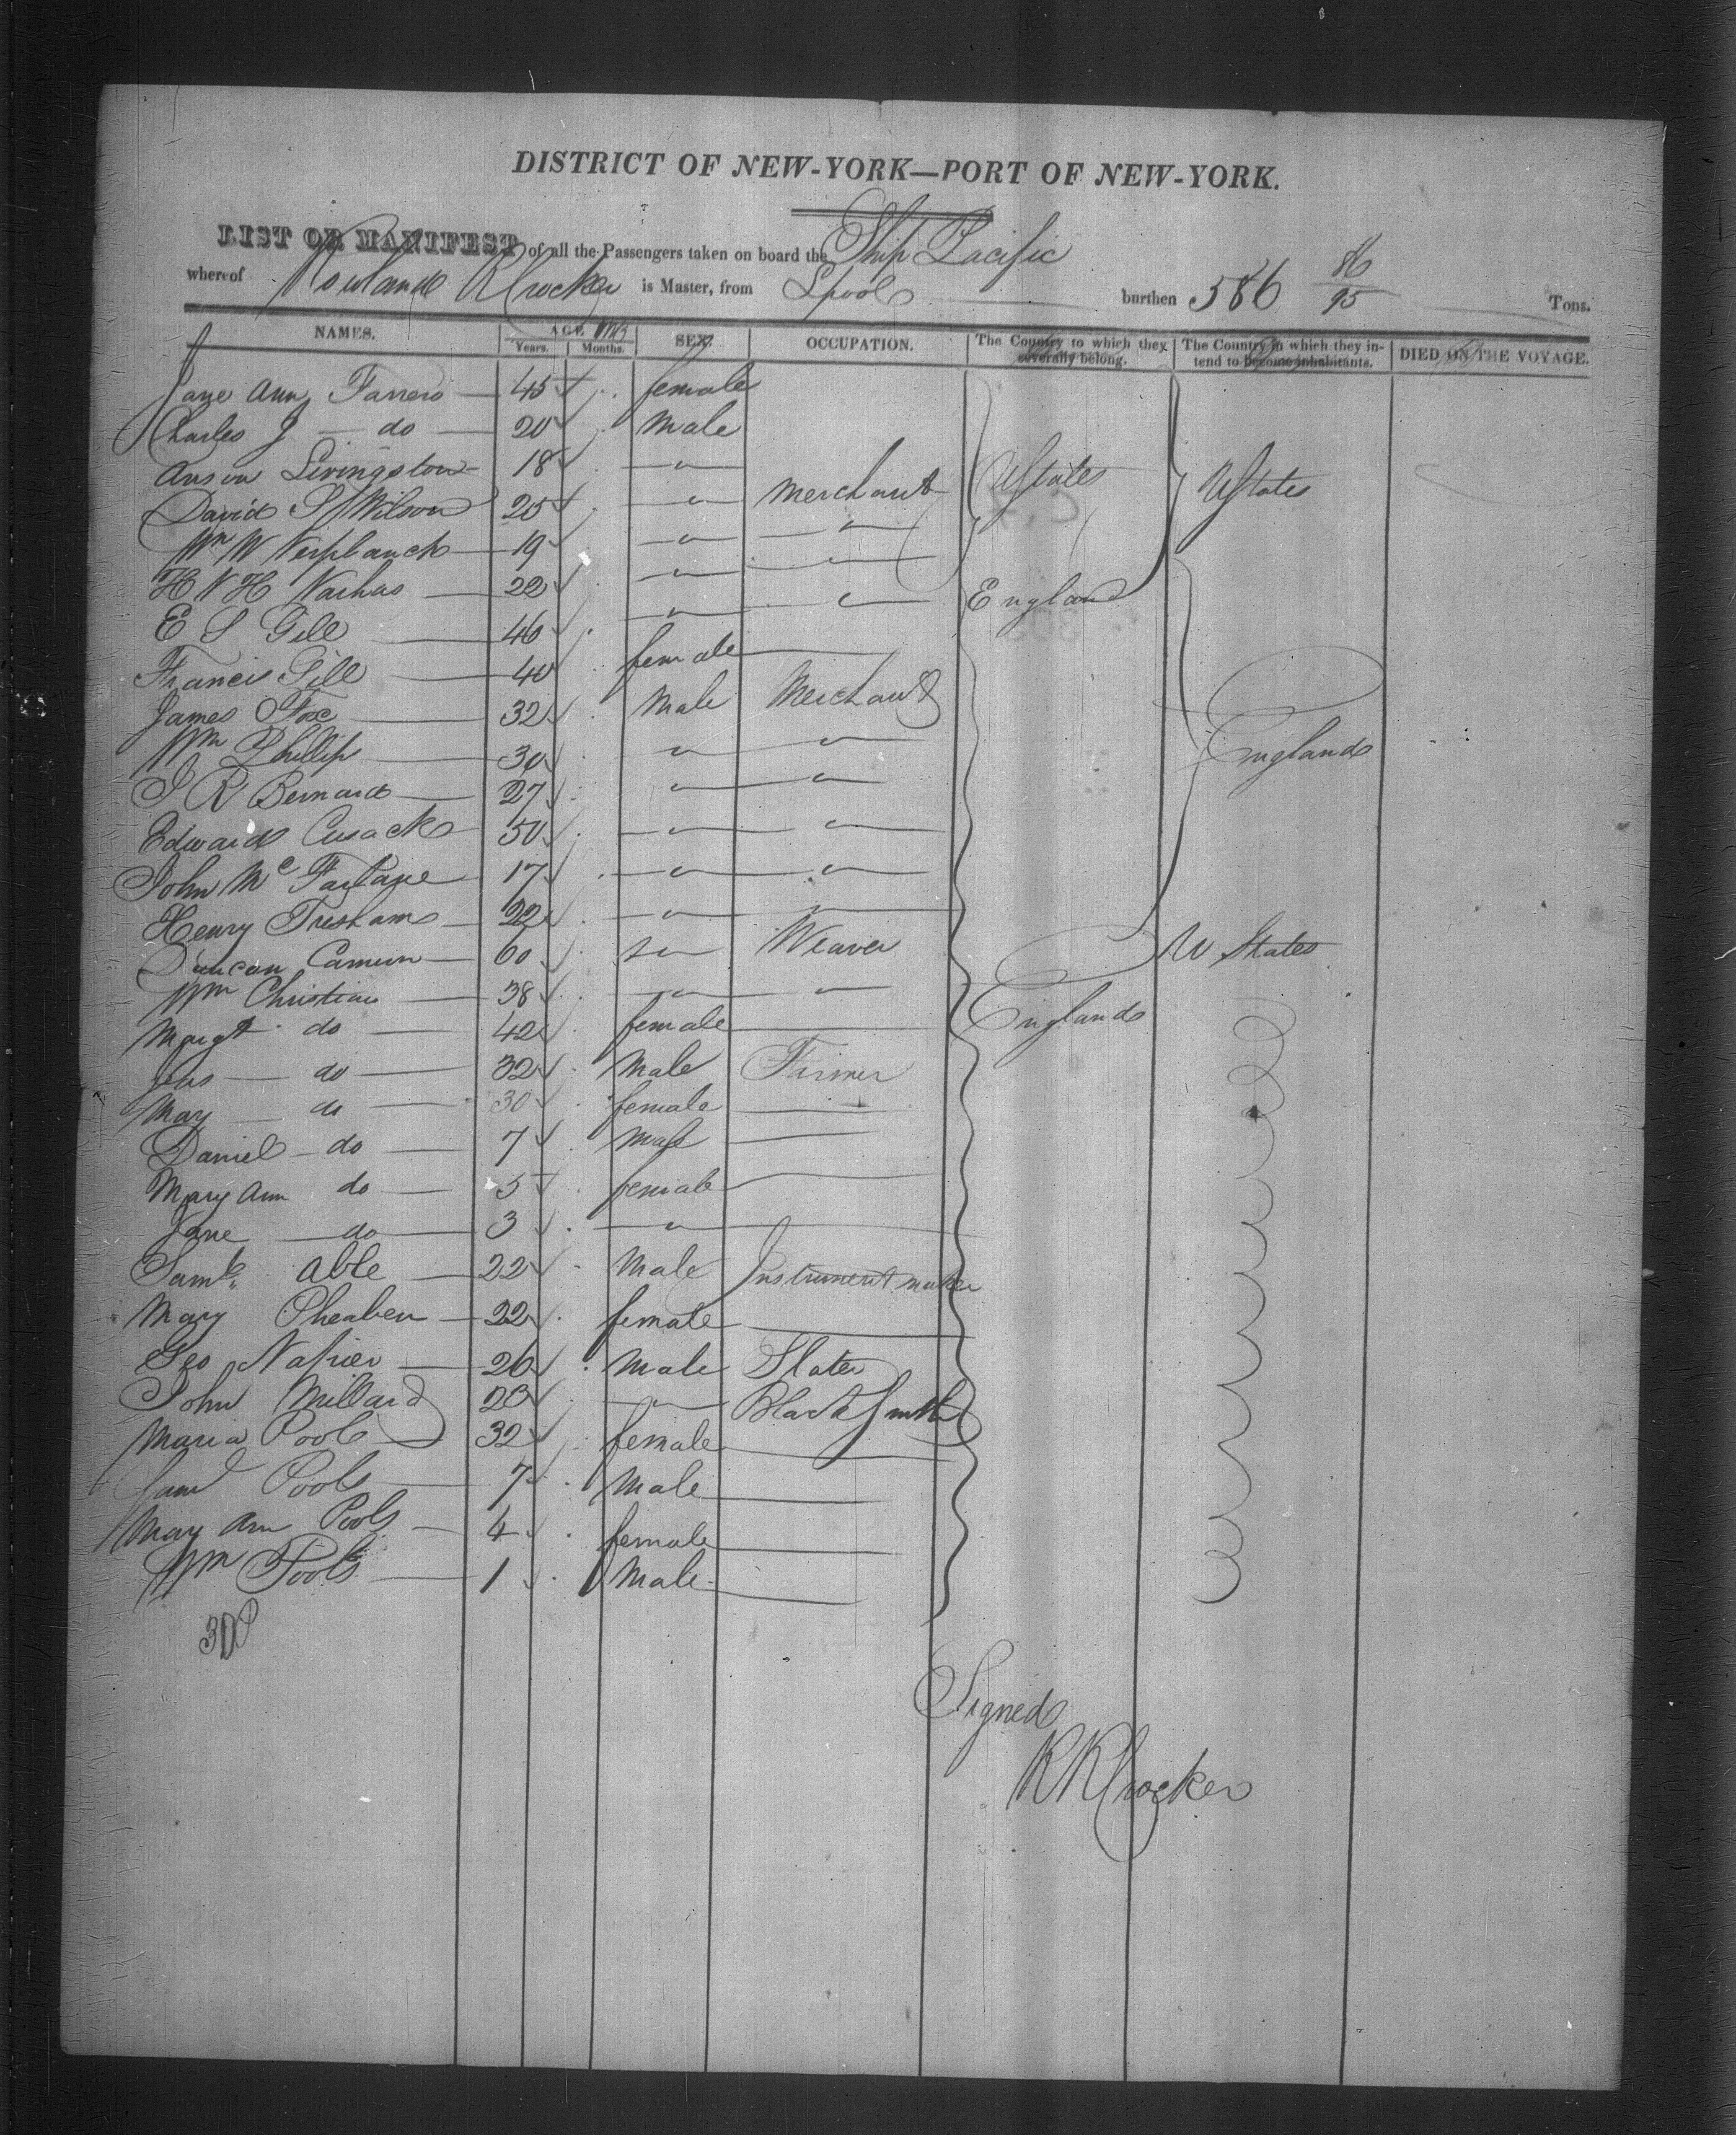 DISTRICT OF NEW-YORK—PORT OF NEW-YORK.
LIST OR MANIFEST of all the Passengers taken on board the Ship Pacific
whereof Rowland R Crocker is Master, from Lpool burthen 586 86/95 Tons.
NAMES. AGE SEX. OCCUPATION. The Country to which they severally belong. The Country in which they intend to become inhabitants. DIED ON THE VOYAGE.
Years. Months.
Jane Ann 45 female
Charles J do 20 male
Anson Livingston 18 "
David S Wilson 25 " Merchant UStates UStates
Wm W Verplanck 19 " "
H V H 22 " "
E S Gill 46 " " England
Francis Gill 40 female
James Fox 32 Male Merchant
Wm Phillip 30 " " England
J R Bernard 27 " "
Edward Cusack 50 " "
John McFarlane 17 " "
Henry Tresham 22 " "
Duncan Cameron 60 " Weaver U States
Wm Christian 38 " "
Margt do 42 female England
do 32 Male Farmer
Mary do 30 female
Daniel do 7 Male
Mary Ann do 5 female
Jane do 3 "
Saml Able 22 Male Instrument maker
Mary 22 female
Geo Napier 26 Male Slater
John Millard 23 " BlackSmith
Maria Pool 32 female
Saml Pool 7 Male
Mary Ann Pool 4 female
Wm Pool 1 Male
30
Signed
R R Crocker